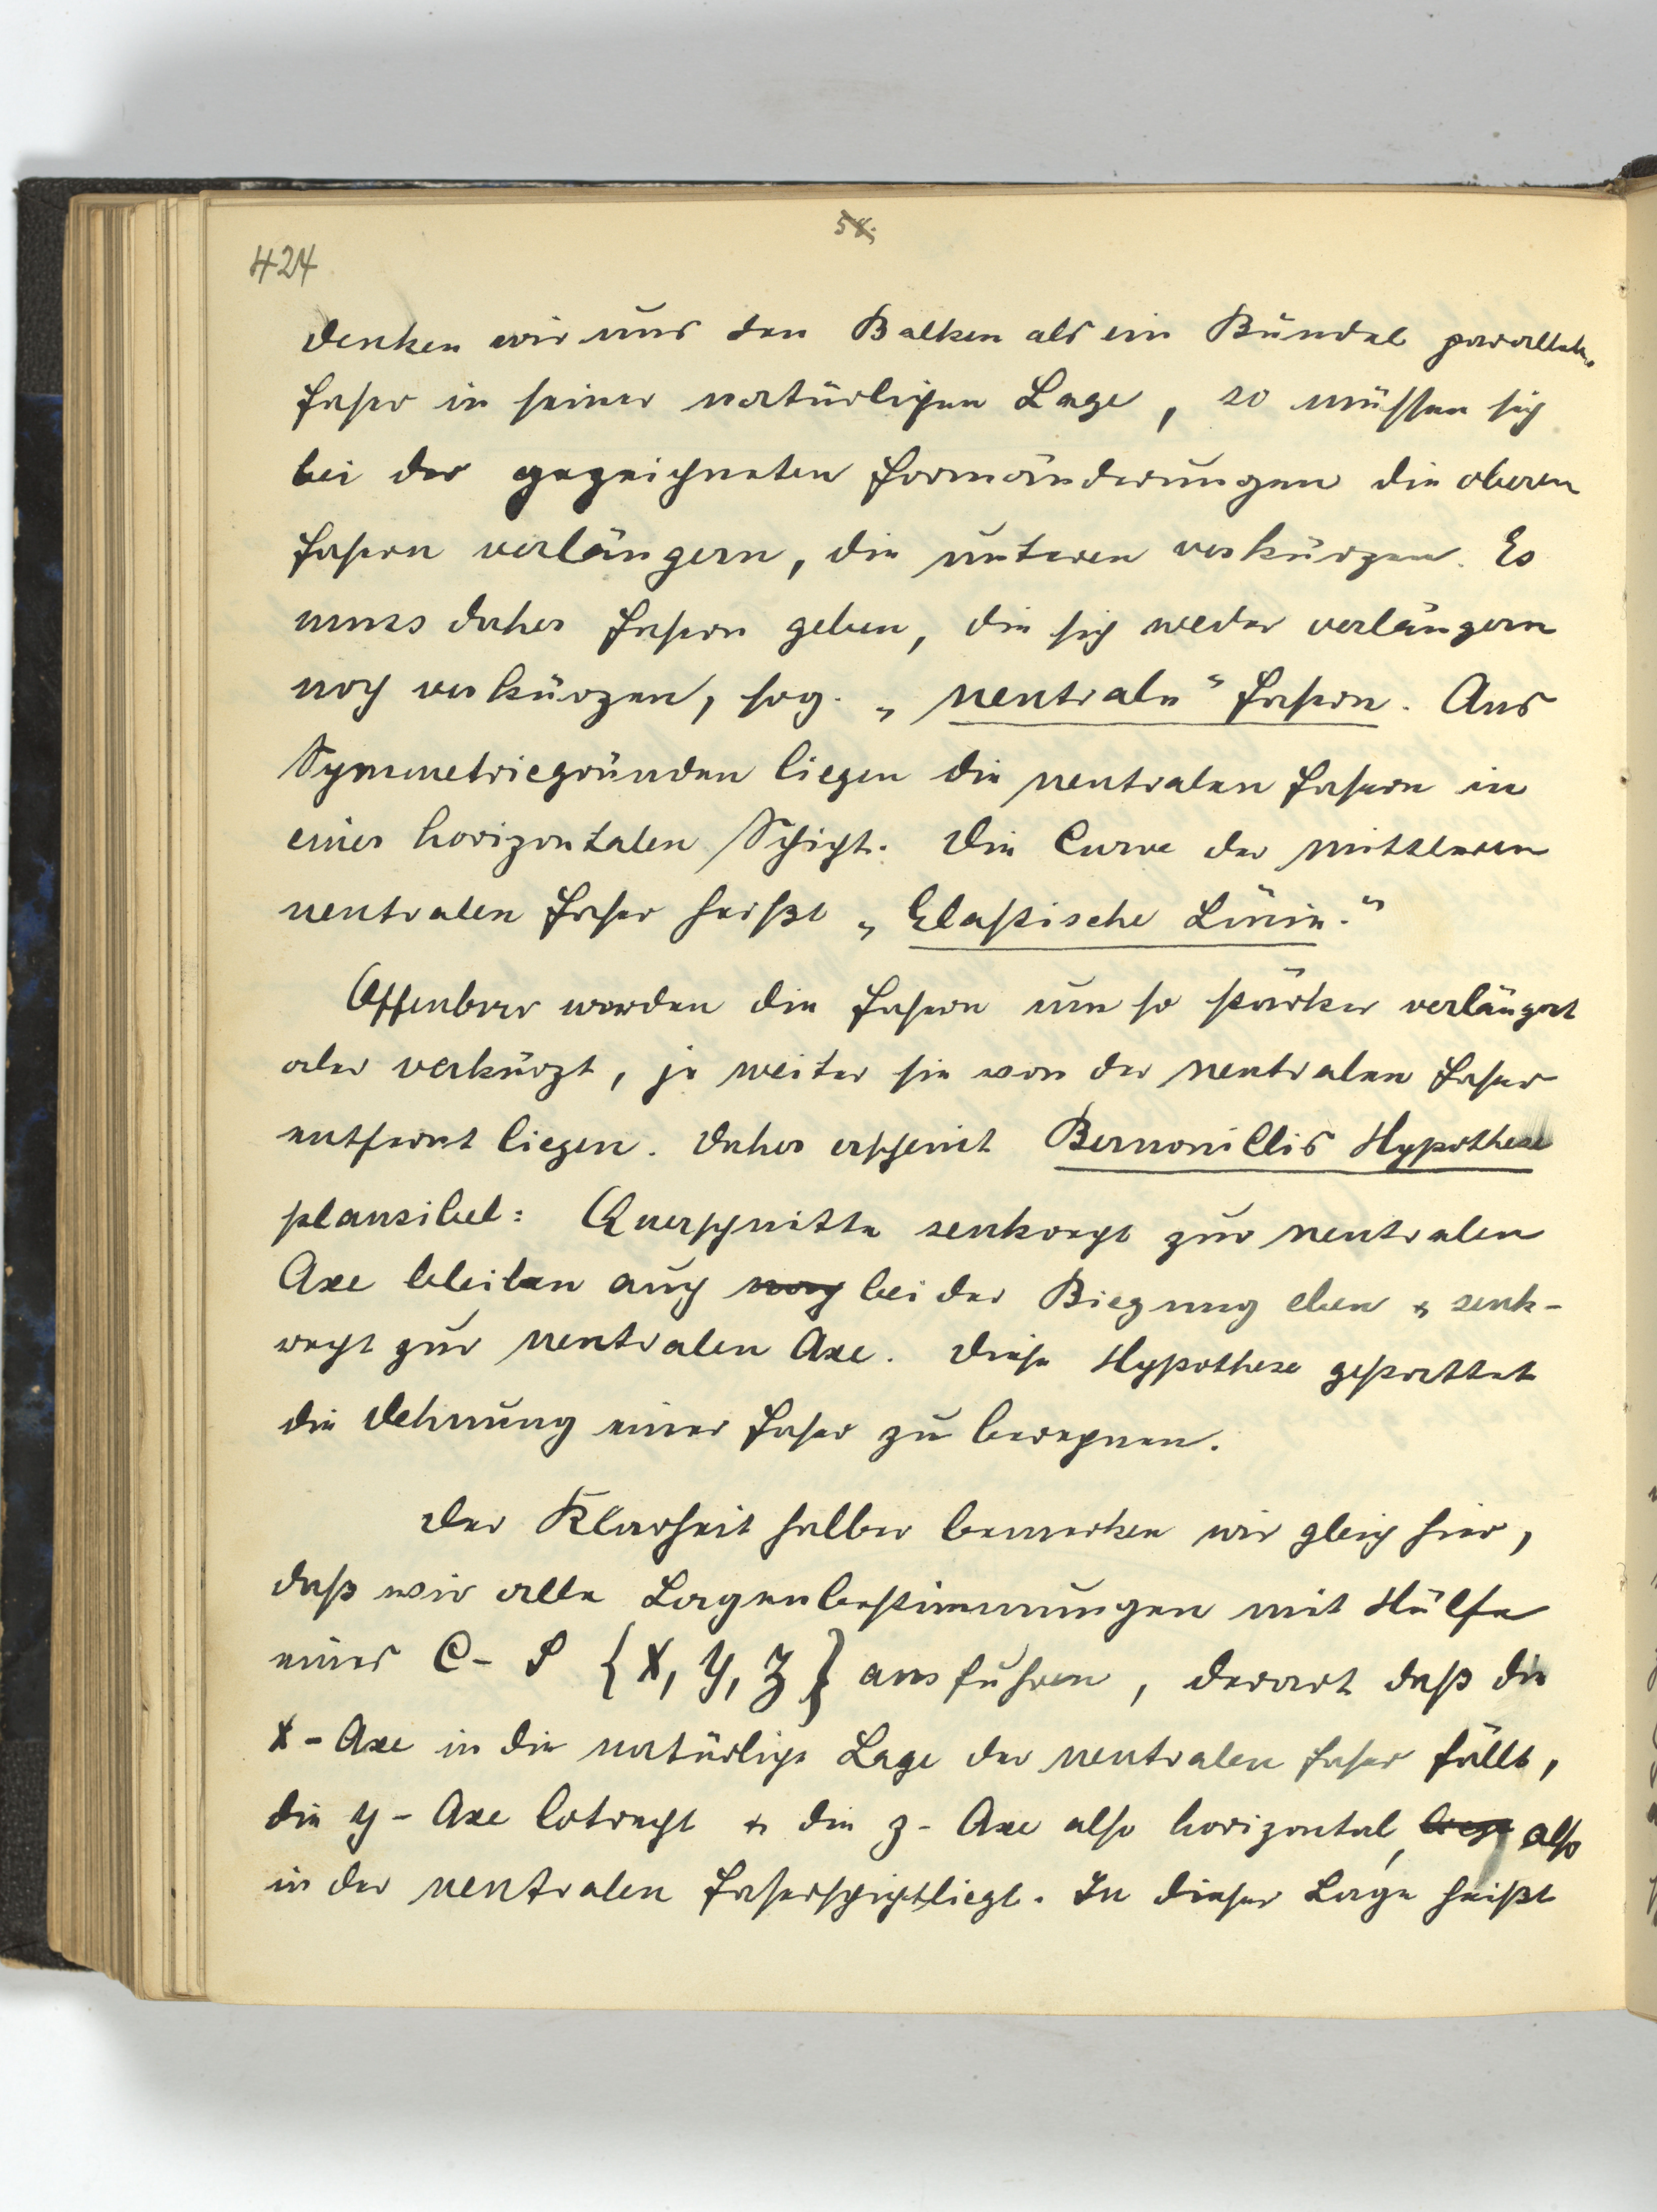 58;
424
Denken wir uns den Balken als ein Bündel paralleler
Faser in seiner natürlichen Lage, so müssen sich
bei der gezeichneten Formänderungen die oberen
Fasern verlängern, die unteren verkürzen. Es
muss daher Fasern geben, die sich weder verlängern
noch verkürzen, sog. „neutrale" Fasern. Aus
Symmetriegründen liegen die neutralen Fasern in
einer horizontalen Schicht. Die Curve der mittleren
neutralen Faser heißt „Elastische Linie."
Offenbar werden die Fasern um so stärker verlängert
oder verkürzt, je weiter sie von der neutralen Faser
entfernt liegen. Daher erscheint Bernouillis Hypothese
plausibel: Querschnitte senkrecht zur neutralen
Axe bleiben auch noch bei der Biegung eben & senk-
recht zur neutralen Axe. Diese Hypothese gestattet
die Dehnung einer Faser zu berechnen.
Der Klarheit halber bemerken wir gleich hier,
daß wir alle Lagenbestimmungen mit Hülfe
eines C-S {X, Y, Z} ausführen, derart daß die
X-Axe in die natürliche Lage der neutralen Faser fällt,
die y-Axe lotrecht & die z-Axe also horizontal, liegt also
in der neutralen Faserschicht liegt. In dieser Lage heißt